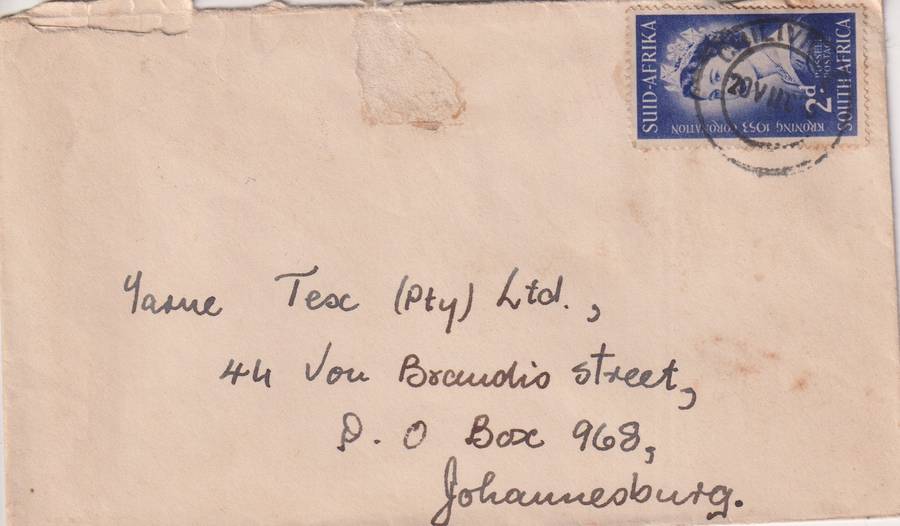 SUID-AFRIKA
POSSEEL
POSTAGE
2d
SOUTH AFRICA
KRONING 1953 CORONATION
20 VIII
Yarne Tex (Pty) Ltd.,
44 Von Brandis street,
P. O Box 968,
Johannesburg.